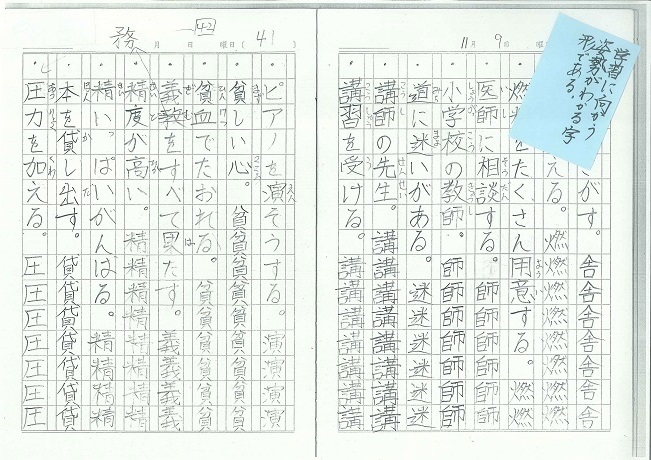 11月9日 曜
学習に向かう
姿勢がわかる字
形である。
がす。舎舎舎舎舎舎舎
える。燃燃燃燃燃燃燃燃
燃料をたくさん用意する。燃燃
医師に相談する。師師師師師師
小学校の教師。師師師師師師師
道に迷いがある。迷迷迷迷迷迷
講師の先生。講講講講講講講講
講習を受ける。講講講講講講講
月 日 曜日〔41
42
務
ピアノを演そうする。演演演演
貧しい心。貧貧貧貧貧貧貧貧貧
貧血でたおれる。貧貧貧貧貧貧
義務をすべて果たす。義義義義
精度が高い。精精精精精精精精
精いっぱいがんばる。精精精精
本を貸し出す。貸貸貸貸貸貸貸
圧力を加える。圧圧圧圧圧圧圧